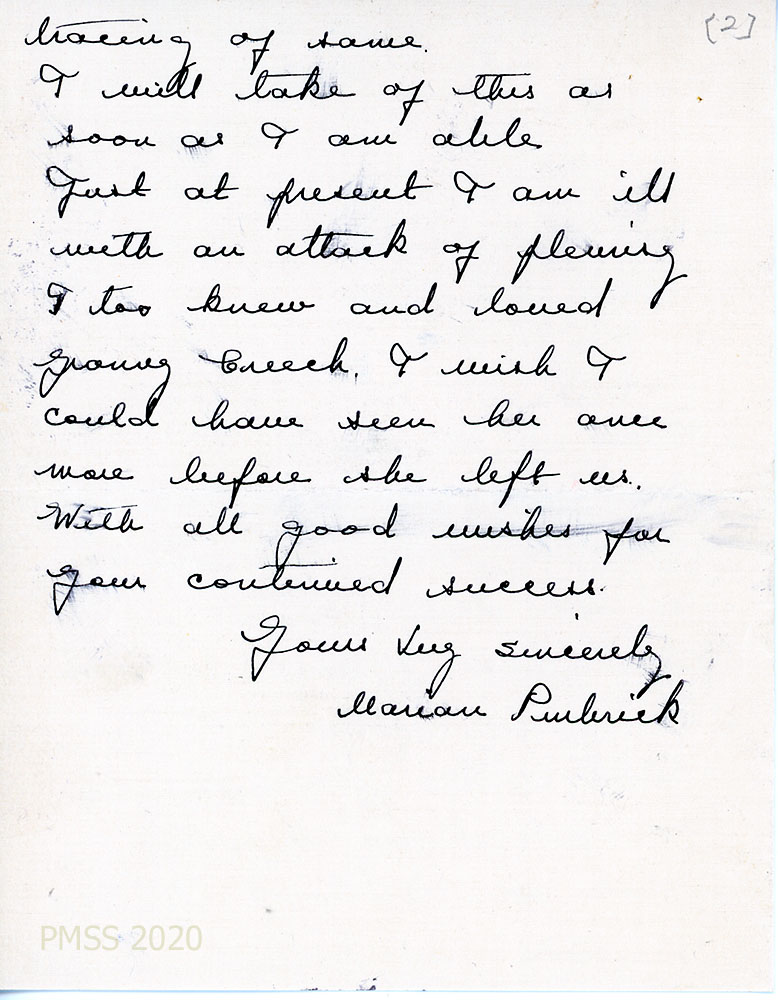 [2]
tracing of same.
I will take of this as
soon as I am able
Just at present I am ill
with an attack of pleurisy
I too knew and loved
Granny Creech. I wish I
could have seen her once
more before she left us.
With all good wishes for
your continued success.
Yours very sincerely
Marian
PMSS 2020